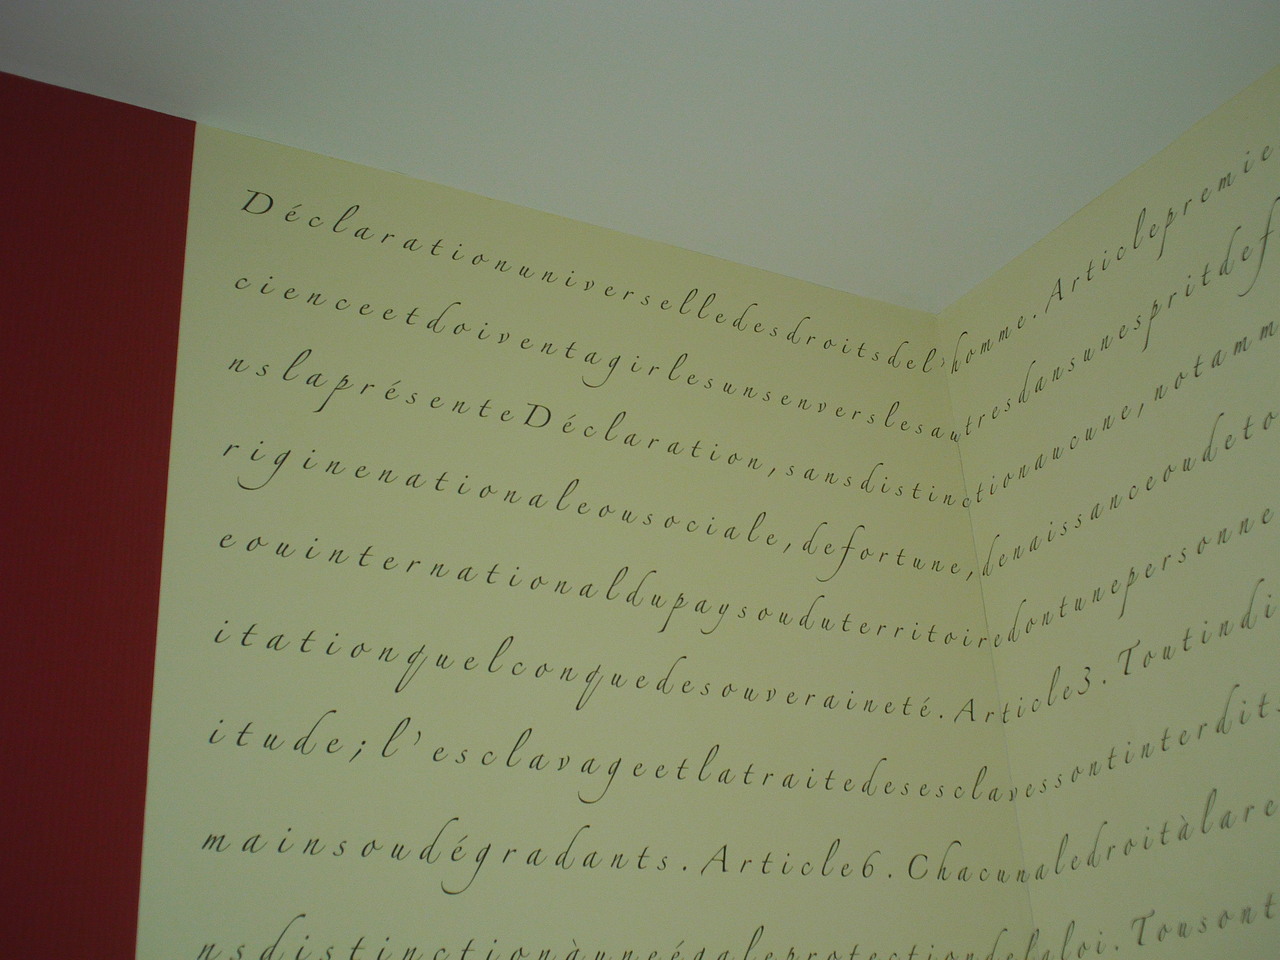 Déclarationuniverselledesdroitsdel'homme.Articlepremie
cienceetdoiventagirlesunsenverslesautresdansunespritdef
nslaprésenteDéclaration,sansdistinctionaucune,notamm
riginenationaleousociale,defortune,denaissanceoudeto
eouinternationaldupaysouduterritoiredontunepersonne
itationquelconquedesouveraineté.Article3.Toutindi
itude;l'esclavageetlatraitedesesclavessontinterdits
mainsoudégradants.Article6.Chacunaledroitàlare
nsdistinctionàuneégaleprotectiondelaloi.Tousont